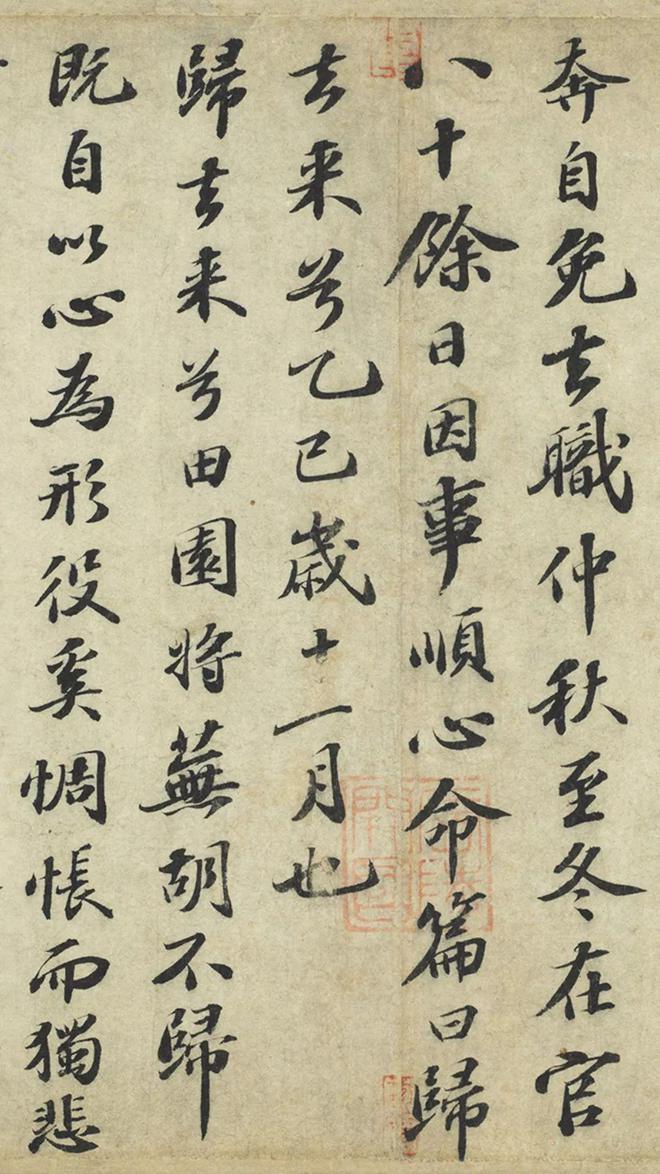 奔自免去職仲秋至冬在官
八十餘日因事順心命篇曰歸
去来兮乙巳歳十一月也
歸去来兮田園将蕪胡不歸
既自以心為形役奚惆悵而獨悲